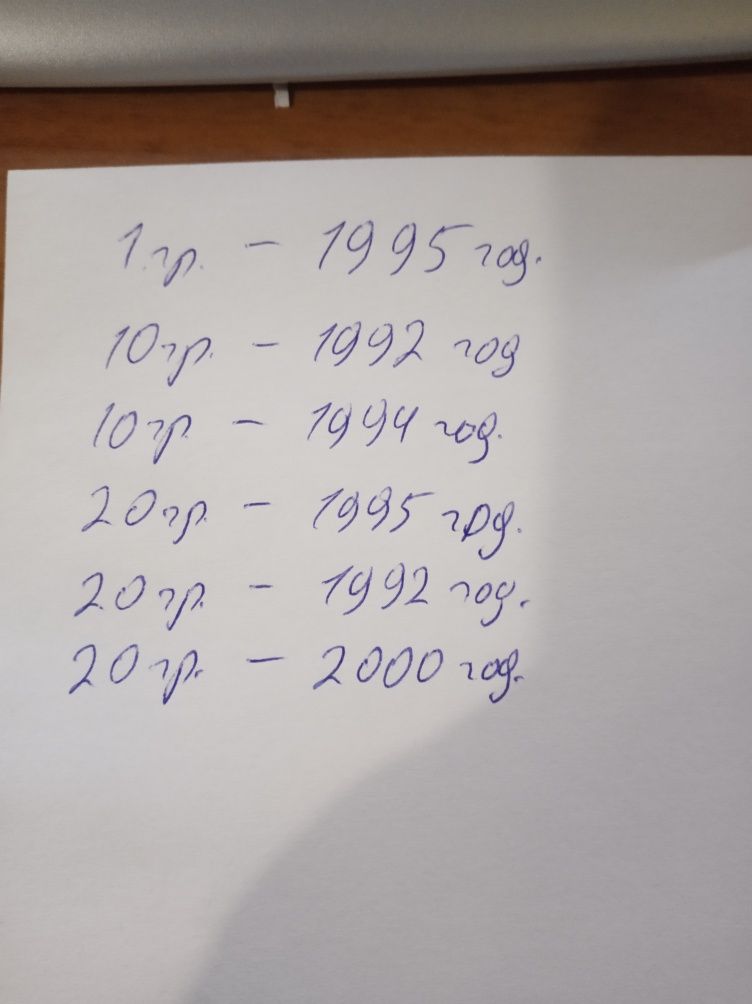 1 гр. - 1995 год.
10 гр. - 1992 год
10 гр - 1994 год.
20 гр. - 1995 год.
20 гр. - 1992 год.
20 гр. - 2000 год.